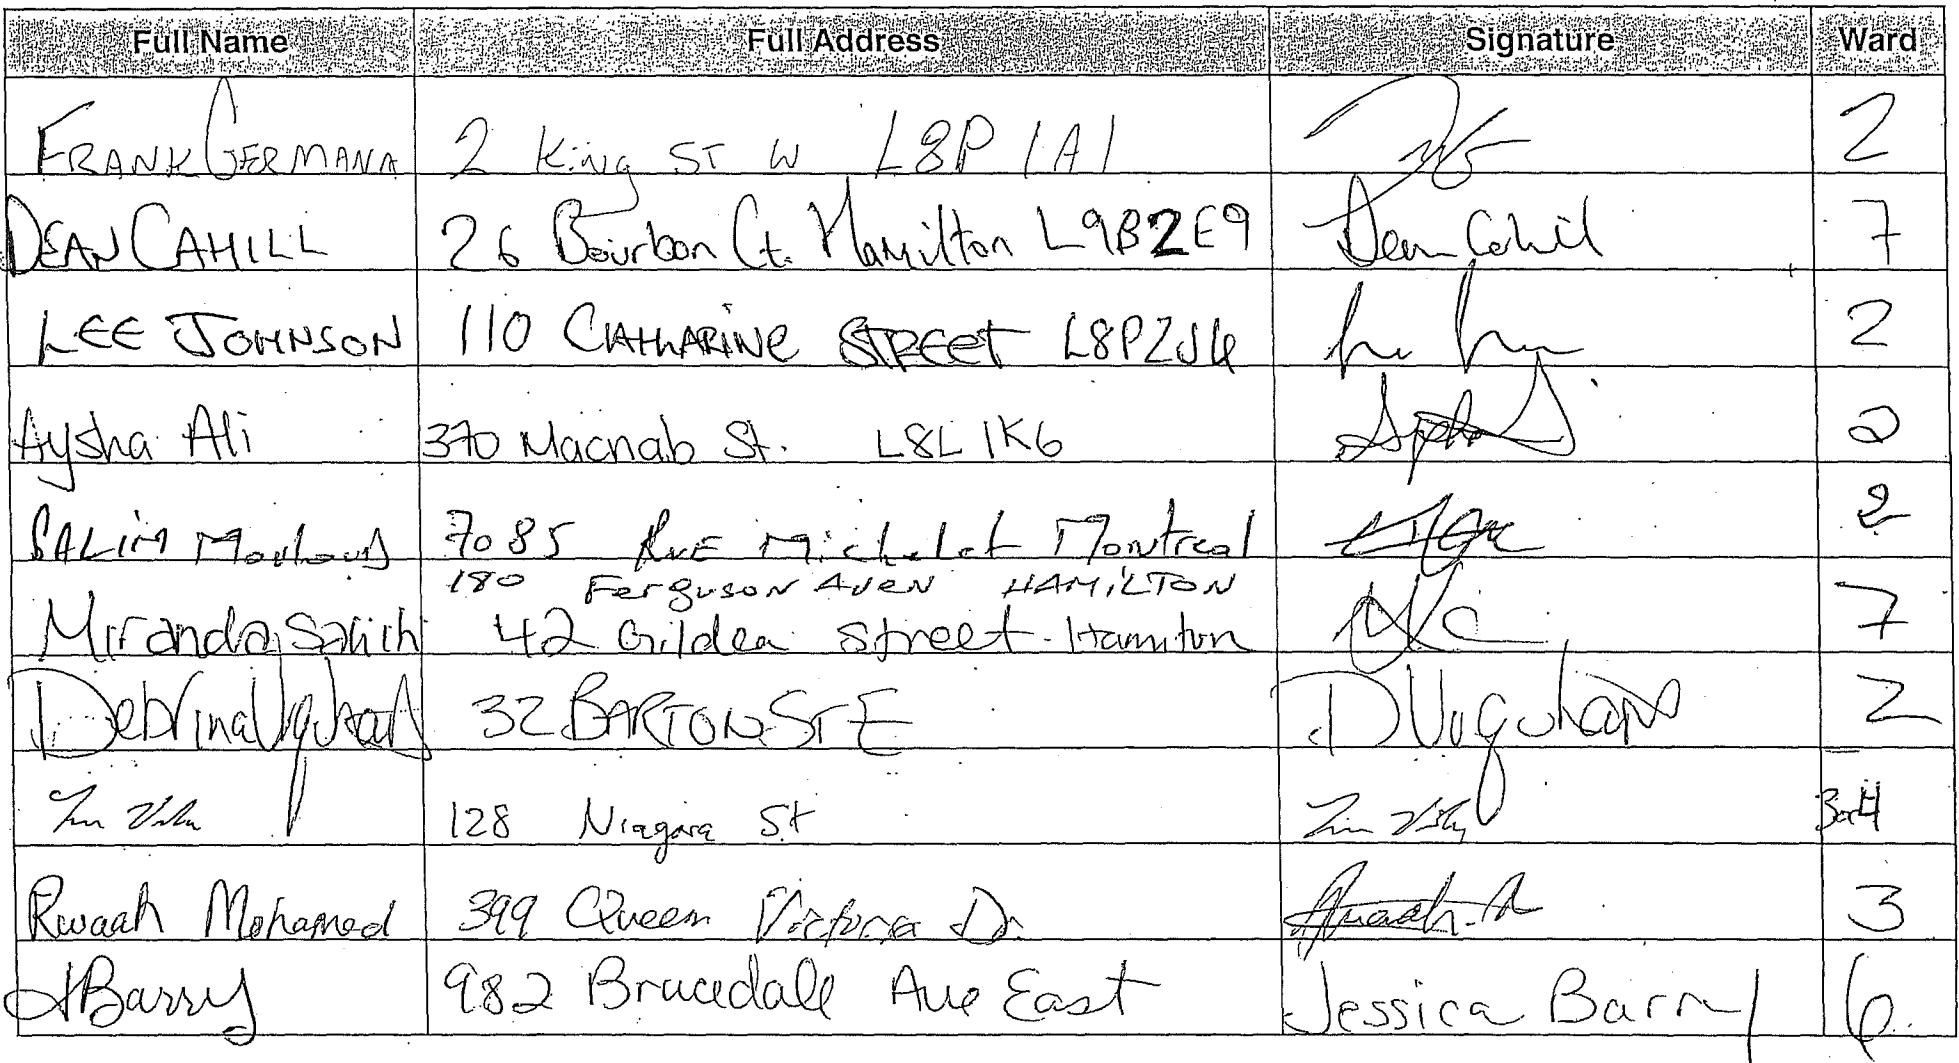 Full Name Full Address Signature Ward
FRANK GERMANA 2 King ST W L8P 1A1 2
DEAN CAHILL 26 Bourbon Ct. Hamilton L9B2E9 Dean Cahill 7
LEE JOHNSON 110 CATHARINE STREET L8P2J4 2
Aysha Ali 370 Macnab St. L8L 1K6 2
SALIM 7085 RUE Michelet Montreal 2
180 Ferguson AveN HAMILTON
Miranda Salich 42 Gildea Street Hamilton 7
Debrina 32 BARTON ST E D 2
128 Niagara St 3or4
Rwaah Mohamed 399 Queen Victoria Dr. 3
JBarry 982 Brucedale Ave East Jessica Barry 6